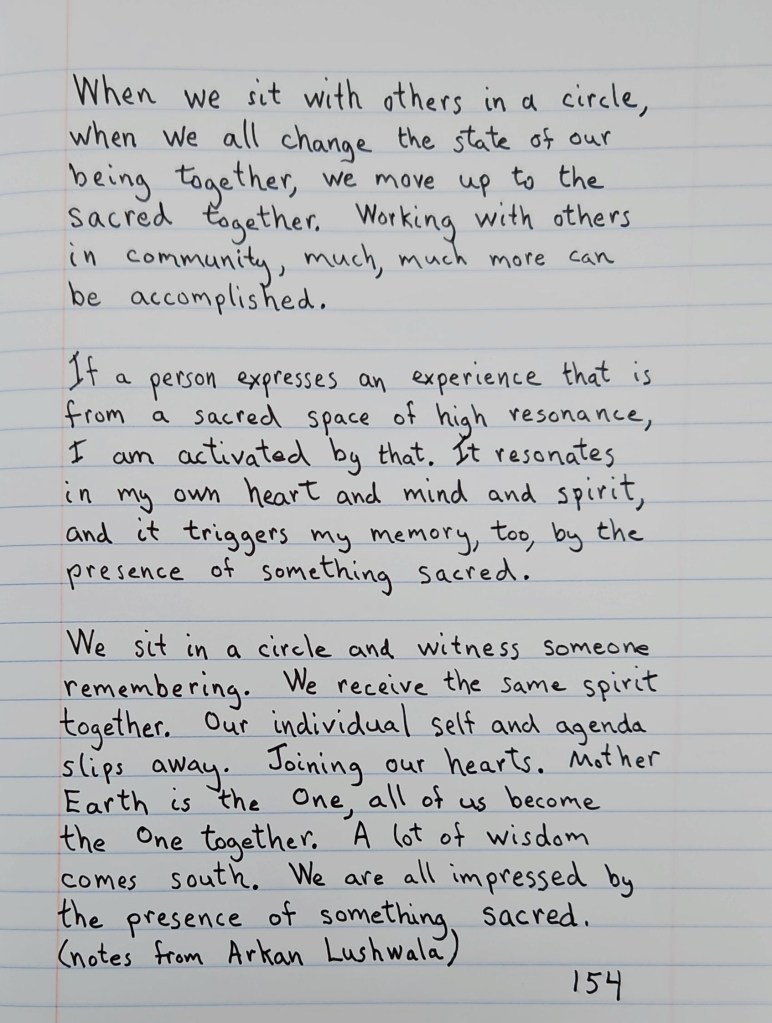 When we sit with others in a circle,
when we all change the state of our
being together, we move up to the
sacred together. Working with others
in community, much, much more can
be accomplished.
If a person expresses an experience that is
from a sacred space of high resonance,
I am activated by that. It resonates
in my own heart and mind and spirit,
and it triggers my memory, too, by the
presence of something sacred.
We sit in a circle and witness someone
remembering. We receive the same spirit
together. Our individual self and agenda
slips away. Joining our hearts. Mother
Earth is the One, all of us become
the One together. A lot of wisdom
comes south. We are all impressed by
the presence of something sacred.
(notes from Arkan Lushwala)
154